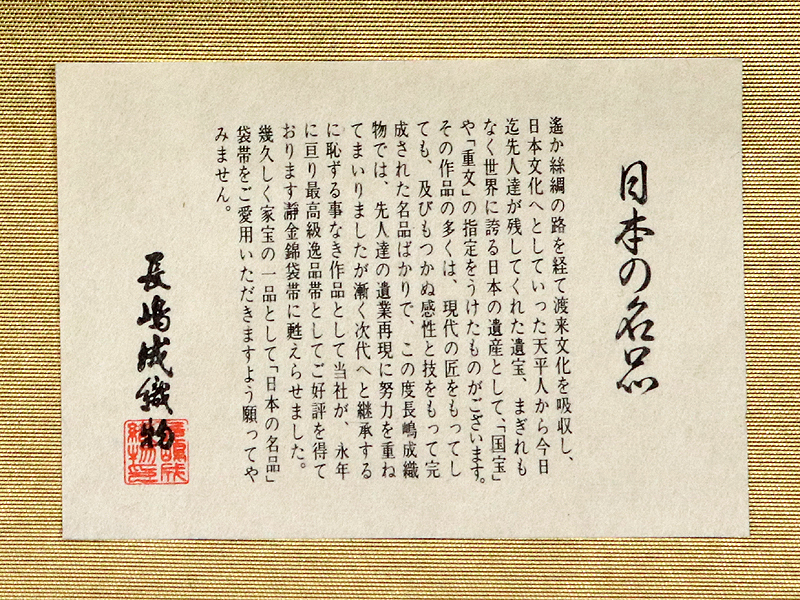 日本の名品
遙か絲綢の路を経て渡来文化を吸収し、
日本文化へとしていった天平人から今日
迄先人達が残してくれた遺宝、まぎれも
なく世界に誇る日本の遺産として、「国宝」
や「重文」の指定をうけたものがございます。
その作品の多くは、現代の匠をもってし
ても、及びもつかぬ感性と技をもって完
成された名品ばかりで、この度長嶋成織
物では、先人達の遺業再現に努力を重ね
てまいりましたが漸く次代へと継承する
に恥ずる事なき作品として当社が、永年
に亘り最高級逸品帯としてご好評を得て
おります瀞金錦袋帯に甦えらせました。
幾久しく家宝の一品として「日本の名品」
袋帯をご愛用いただきますよう願ってや
みません。
長嶋成織物
長嶋成
織物印